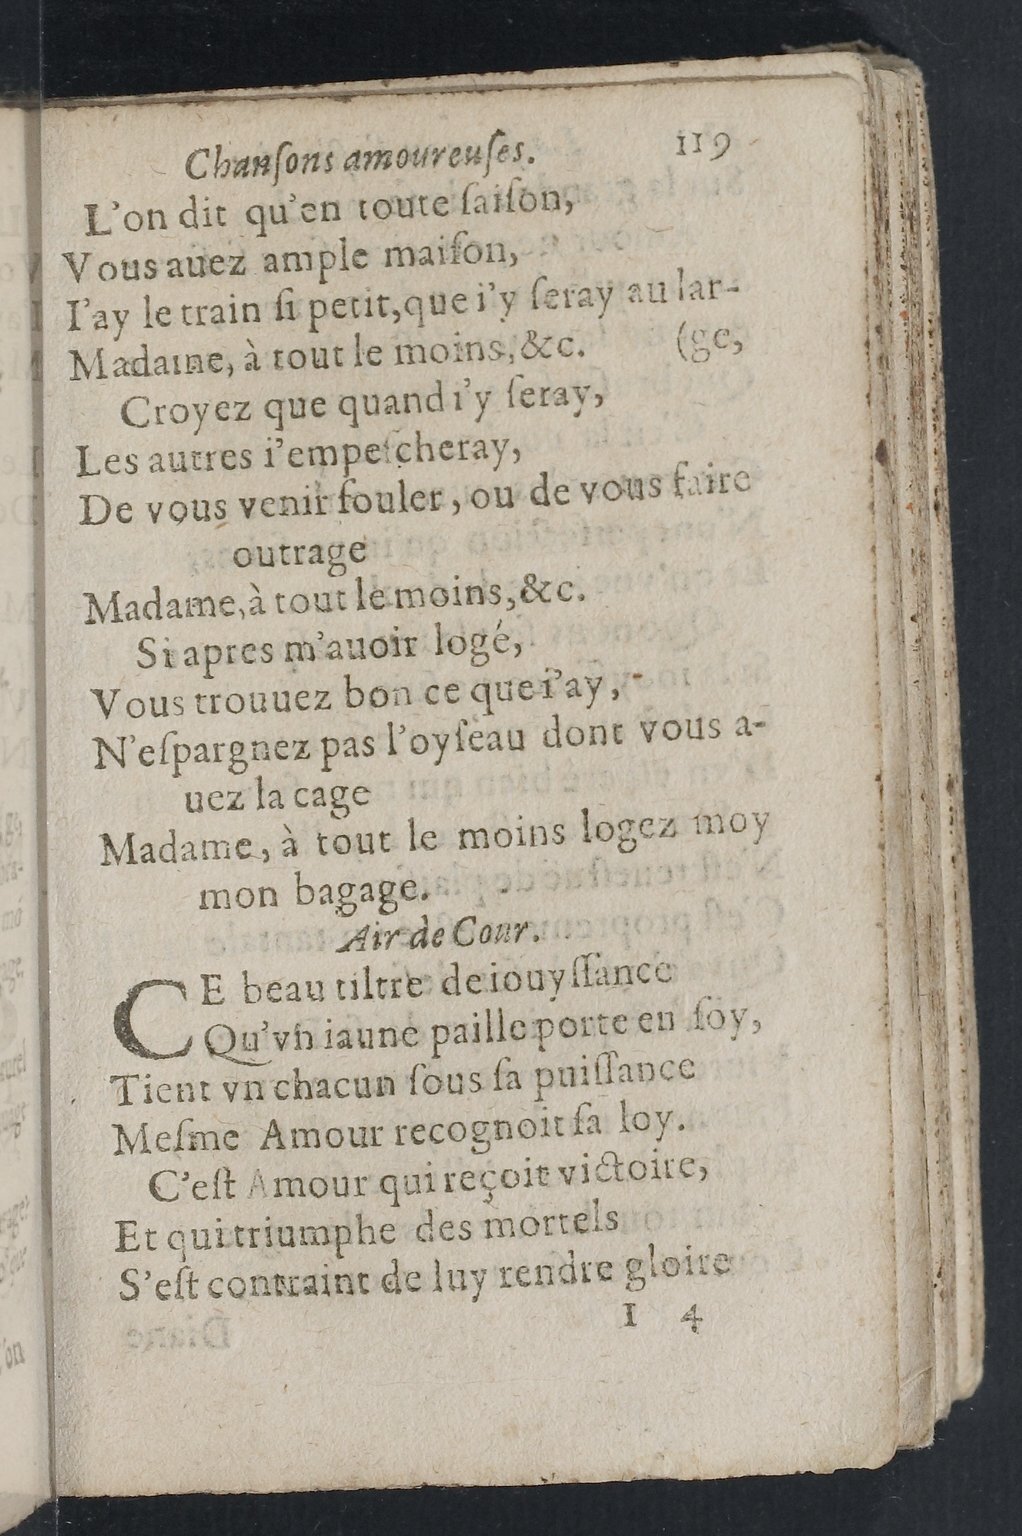 Chanſons amoureuſes. 119
L'on dit qu'en toute ſaiſon,
Vous auez ample maiſon,
I'ay le train ſi petit, que i'y ſeray au lar-
Madame, à tout le moins, &c. (ge,
Croyez que quand i'y ſeray,
Les autres i'empeſcheray,
De vous venir fouler, ou de vous faire
outrage
Madame, à tout le moins, &c.
Si apres m'auoir logé,
Vous trouuez bon ce que i'ay,
N'eſpargnez pas l'oyſeau dont vous a-
uez la cage
Madame, à tout le moins logez moy
mon bagage.
Air de Cour.
CE beau tiltre de iouyſſance
Qu'vn iaune paille porte en ſoy,
Tient vn chacun ſous ſa puiſſance
Meſme Amour recognoit ſa loy.
C'eſt Amour qui reçoit victoire,
Et qui triumphe des mortels
S'eſt contraint de luy rendre gloire
I 4